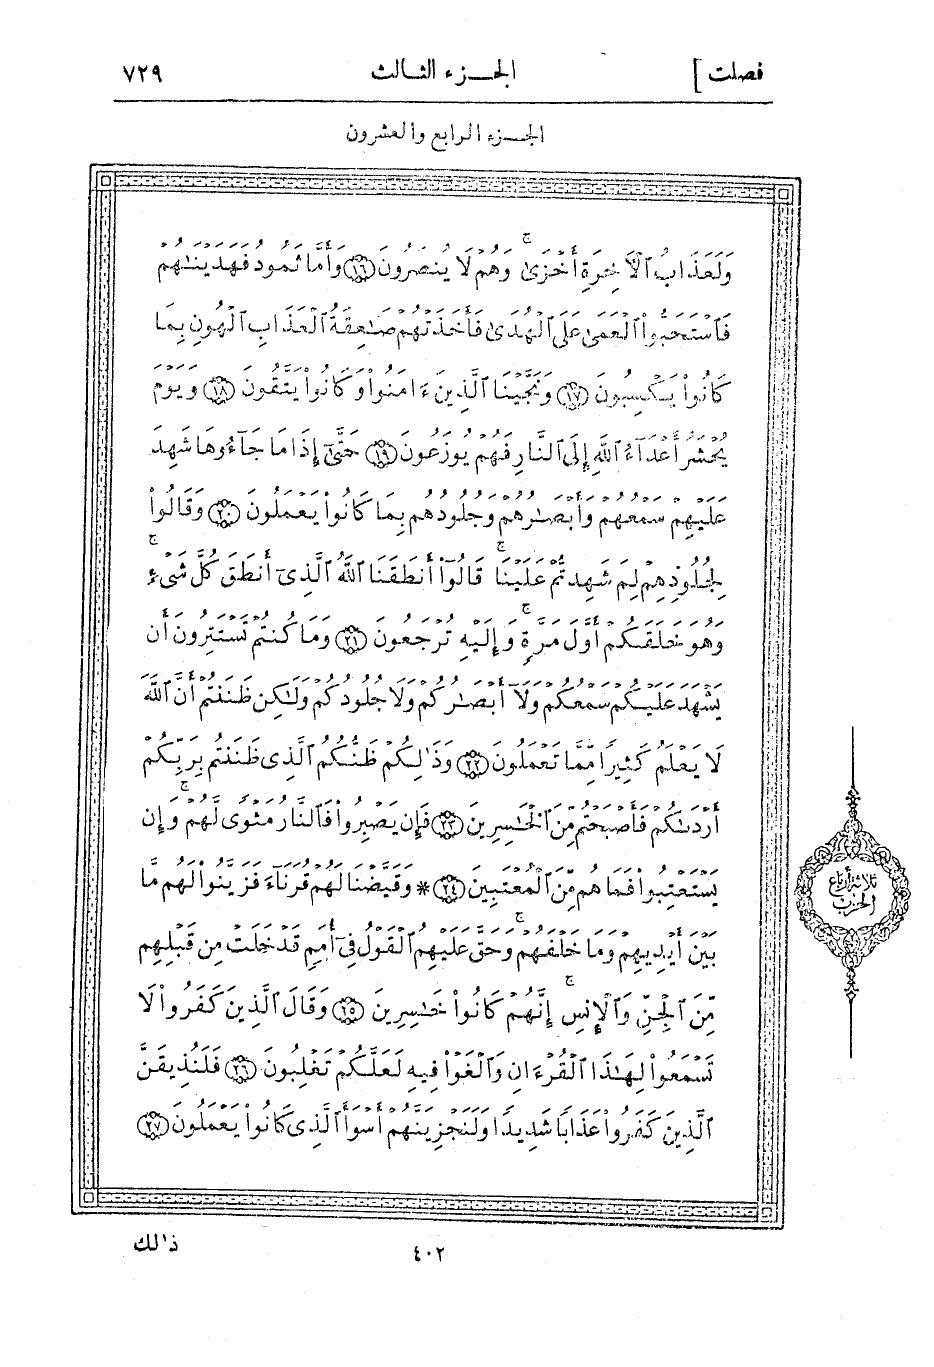 فصلت ] الجــزء الثــالث ٧٢٩
الجــزء الرابع والعشرون
وَلَعَذَابُ ٱلْأَخِرَةِ أَخْزَىٰ ۚ وَهُمْ لَا يُنصَرُونَ ﴿١٦﴾ وَأَمَّا ثَمُودُ فَهَدَيْنَٰهُمْ
فَٱسْتَحَبُّوا۟ ٱلْعَمَىٰ عَلَى ٱلْهُدَىٰ فَأَخَذَتْهُمْ صَٰعِقَةُ ٱلْعَذَابِ ٱلْهُونِ بِمَا
كَانُوا۟ يَكْسِبُونَ ﴿١٧﴾ وَنَجَّيْنَا ٱلَّذِينَ ءَامَنُوا۟ وَكَانُوا۟ يَتَّقُونَ ﴿١٨﴾ وَيَوْمَ
يُحْشَرُ أَعْدَآءُ ٱللَّهِ إِلَى ٱلنَّارِ فَهُمْ يُوزَعُونَ ﴿١٩﴾ حَتَّىٰٓ إِذَا مَا جَآءُوهَا شَهِدَ
عَلَيْهِمْ سَمْعُهُمْ وَأَبْصَٰرُهُمْ وَجُلُودُهُم بِمَا كَانُوا۟ يَعْمَلُونَ ﴿٢٠﴾ وَقَالُوا۟
لِجُلُودِهِمْ لِمَ شَهِدتُّمْ عَلَيْنَا ۖ قَالُوٓا۟ أَنطَقَنَا ٱللَّهُ ٱلَّذِىٓ أَنطَقَ كُلَّ شَىْءٍ ۚ
وَهُوَ خَلَقَكُمْ أَوَّلَ مَرَّةٍ ۚ وَإِلَيْهِ تُرْجَعُونَ ﴿٢١﴾ وَمَا كُنتُمْ تَسْتَتِرُونَ أَن
يَشْهَدَ عَلَيْكُمْ سَمْعُكُمْ وَلَآ أَبْصَٰرُكُمْ وَلَا جُلُودُكُمْ وَلَٰكِن ظَنَنتُمْ أَنَّ ٱللَّهَ
لَا يَعْلَمُ كَثِيرًا مِّمَّا تَعْمَلُونَ ﴿٢٢﴾ وَذَٰلِكُمْ ظَنُّكُمُ ٱلَّذِى ظَنَنتُم بِرَبِّكُمْ
أَرْدَىٰكُمْ فَأَصْبَحْتُم مِّنَ ٱلْخَٰسِرِينَ ﴿٢٣﴾ فَإِن يَصْبِرُوا۟ فَٱلنَّارُ مَثْوًى لَّهُمْ ۖ وَإِن
يَسْتَعْتِبُوا۟ فَمَا هُم مِّنَ ٱلْمُعْتَبِينَ ﴿٢٤﴾ * وَقَيَّضْنَا لَهُمْ قُرَنَآءَ فَزَيَّنُوا۟ لَهُم مَّا
بَيْنَ أَيْدِيهِمْ وَمَا خَلْفَهُمْ وَحَقَّ عَلَيْهِمُ ٱلْقَوْلُ فِىٓ أُمَمٍ قَدْ خَلَتْ مِن قَبْلِهِم
مِّنَ ٱلْجِنِّ وَٱلْإِنسِ ۖ إِنَّهُمْ كَانُوا۟ خَٰسِرِينَ ﴿٢٥﴾ وَقَالَ ٱلَّذِينَ كَفَرُوا۟ لَا
تَسْمَعُوا۟ لِهَٰذَا ٱلْقُرْءَانِ وَٱلْغَوْا۟ فِيهِ لَعَلَّكُمْ تَغْلِبُونَ ﴿٢٦﴾ فَلَنُذِيقَنَّ
ٱلَّذِينَ كَفَرُوا۟ عَذَابًا شَدِيدًا وَلَنَجْزِيَنَّهُمْ أَسْوَأَ ٱلَّذِى كَانُوا۟ يَعْمَلُونَ ﴿٢٧﴾
ثلاثة أرباع
الحزب
ذَٰلك
٤٠٢